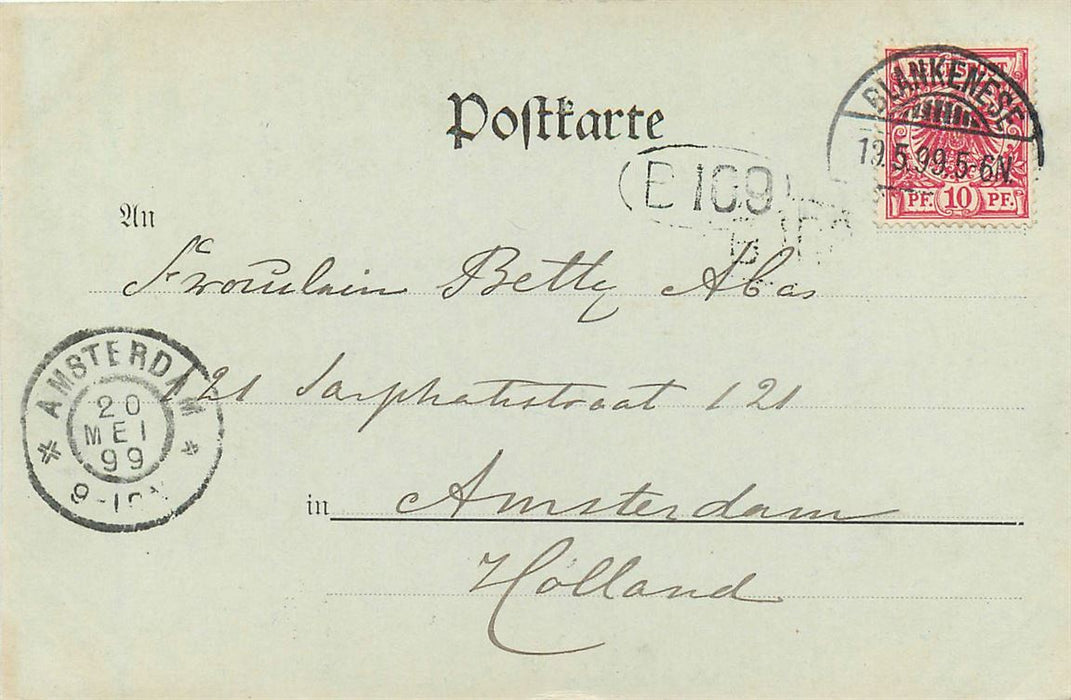 Postkarte
BLANKENESE
19.5.99.5-6N.
PF. 10 PF.
E 109
An
Fräulein Betty Abas
121 Sarphatistraat 121
AMSTERDAM
20
MEI
99
9-10
in Amsterdam
Holland